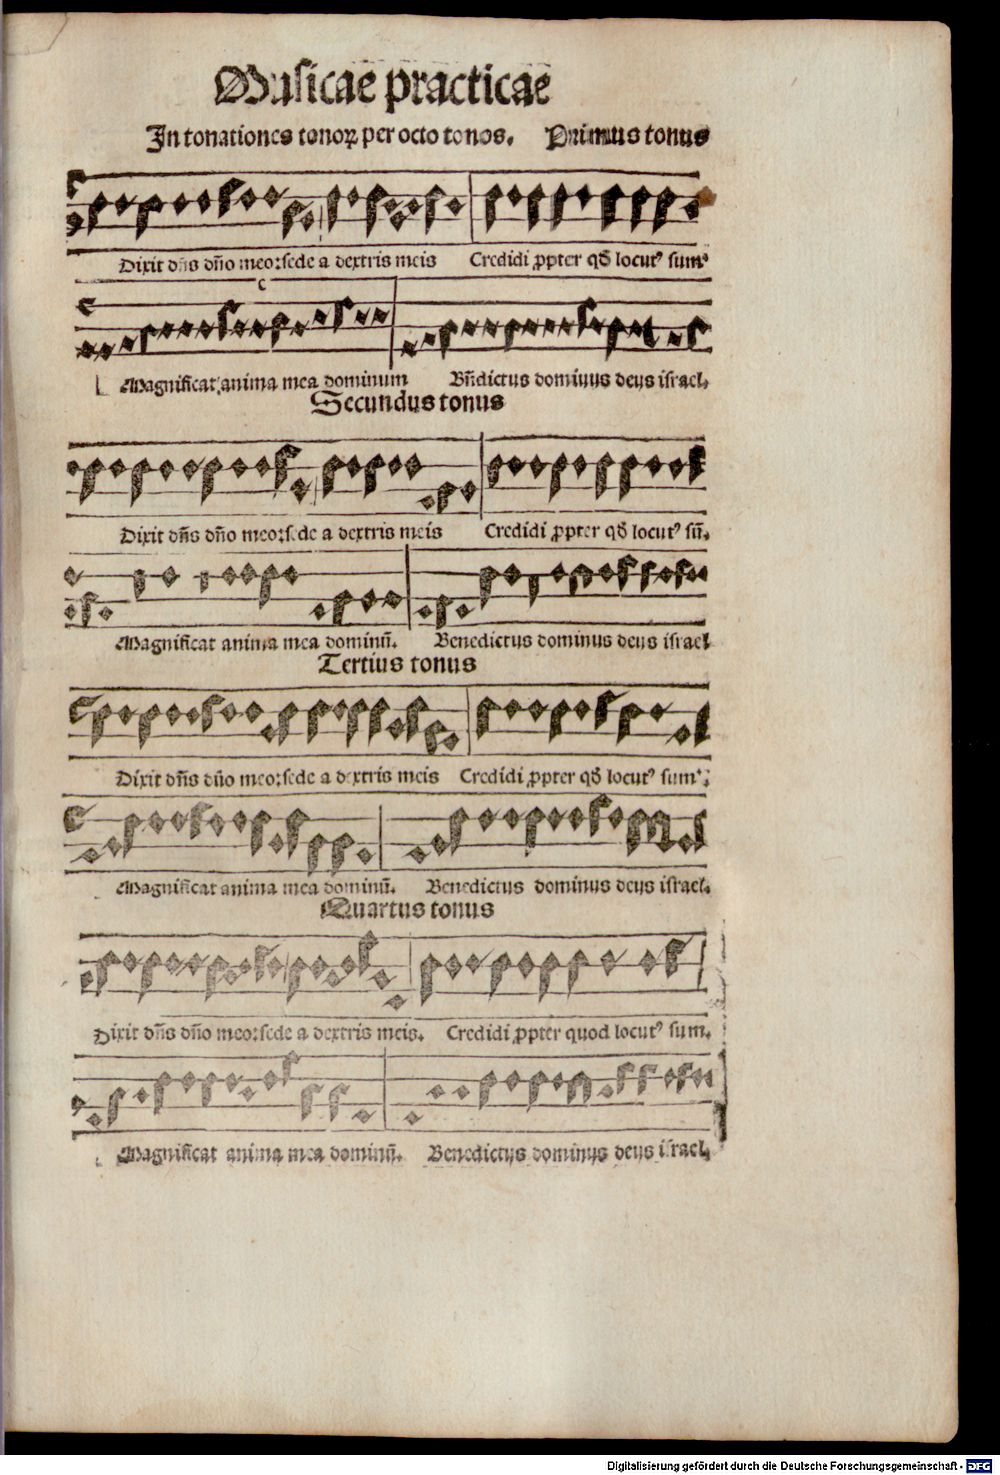 Musicae practicae
In tonationes tonoꝝ per octo tonos. Primus tonus
Dixit dn̄s dn̄o meo:sede a dextris meis Credidi ꝓpter qd̄ locutꝰ sumꝰ
c
Magnificat anima mea dominum Bn̄dictus dominus deus israel.
Secundus tonus
Dixit dn̄s dn̄o meo:sede a dextris meis Credidi ꝓpter qd̄ locutꝰ sū.
Magnificat anima mea dominū. Benedictus dominus deus israel
Tertius tonus
Dixit dn̄s dn̄o meo:sede a dextris meis Credidi ꝓpter qd̄ locutꝰ sumꝰ.
Magnificat anima mea dominū. Benedictus dominus deus israel.
Quartus tonus
Dixit dn̄s dn̄o meo:sede a dextris meis. Credidi ꝓpter quod locutꝰ sum.
Magnificat anima mea dominū. Benedictus dominus deus israel.
Digitalisierung gefördert durch die Deutsche Forschungsgemeinschaft - DFG